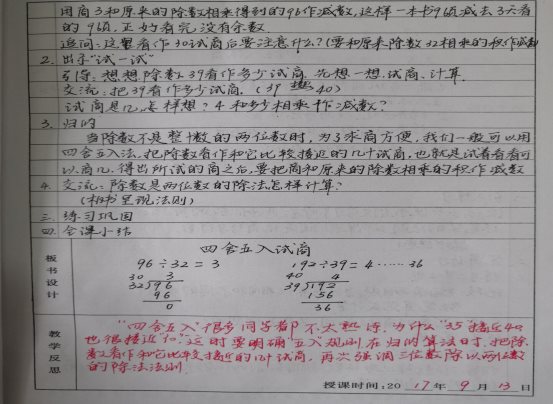 用商3和原来的除数相乘得到的96作减数,这样一本书96页减去3天看
的96页,正好看完没有余数
追问:这里看作30试商后要注意什么?(要和原来除数32相乘的积作减数)
2. 出示“试一试”
引导:想想除数39看作多少试商,先想一想,试商、计算
交流:把39看作多少试商。(39 40)
试商是几,怎样想?4和多少相乘作减数?
3. 归纳
当除数不是整十数的两位数时,为了求商方便,我们一般可以用
四舍五入法,把除数看作和它比较接近的几十试商,也就是试着看看可
以商几,得出所试的商之后,要把商和原来的除数相乘的积作减数
4. 交流:除数是两位数的除法怎样计算?
(相书呈现法则)
三. 练习巩固
四. 全课小结
板书设计
四舍五入试商
96÷32=3
192÷39=4……36
30 3
32 96
96
0
40 4
39 192
156
36
教学反思
“四舍五入”很多同学都不太熟练,为什么“35”接近40
也很接近“30”这时要明确“五入”规则在归纳算法时,把除
数看作和它比较接近的几十试商,再次强调三位数除以两位数
的除法法则.
授课时间:2017年9月13日